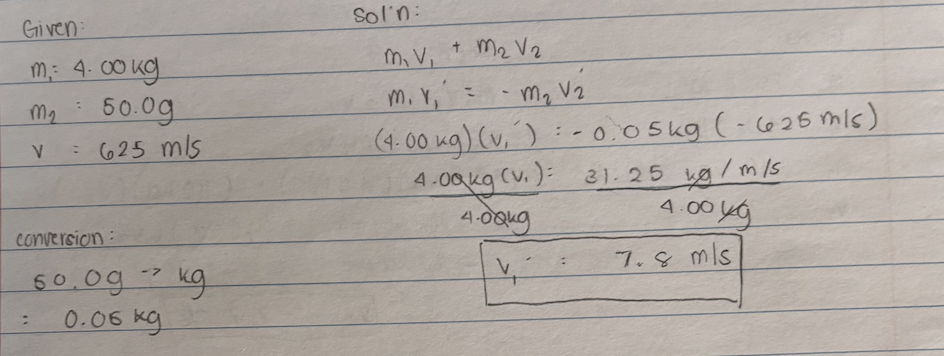 Given:
m₁: 4.00kg
m₂ : 50.0g
v : 625 m/s
conversion:
50.0g → kg
: 0.05 kg
Sol'n:
m₁V₁ + m₂V₂
m₁V₁' = - m₂V₂'
(4.00kg)(V₁') : -0.05kg (-625m/s)
4.00kg(V₁): 31.25 kg/m/s
4.00kg 4.00kg
V₁' : 7.8 m/s